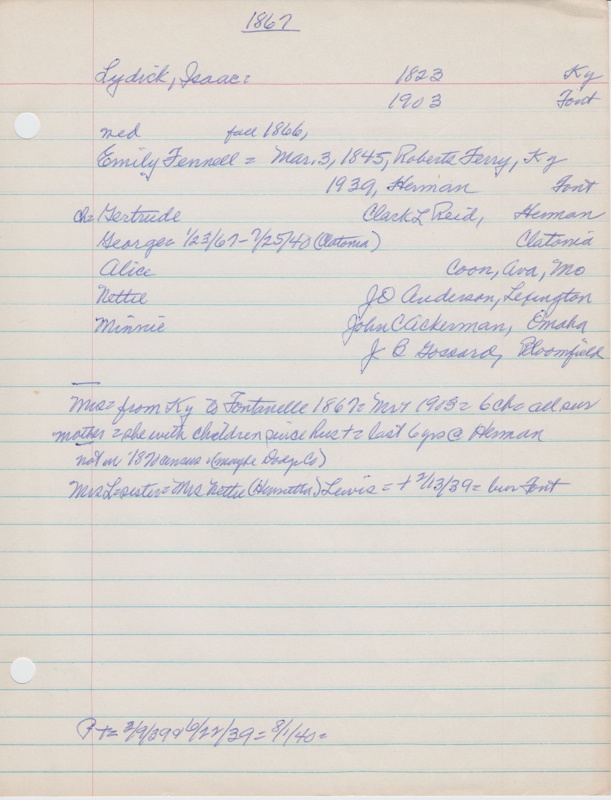 1867
Lydick, Isaac = 1823 Ky
1903 Font
med fall 1866,
Emily Fennell = Mar. 3, 1845, Roberts Ferry, Ky
1939, Herman Font
ch = Gertrude Clark L Reid, Herman
George = 1/23/67 - 7/25/40 (Clatonia) Clatonia
Alice Coon, Ava, Mo
Nettie J O Anderson, Lexington
Minnie John C Ackerman, Omaha
J B Gossard, Bloomfield
Mrs = from Ky to Fontanelle 1867 = Mr + 1903 = 6 ch = all sur
mother = she with children since hus + = last 6 yrs @ Herman
not in 1870 census (maybe Dodge Co)
Mrs L = sister = Mrs Nettie (Henrietta) Lewis = + 2/13/39 = bur Font
P + = 3/9/39 & 6/22/39 = 8/1/40 =